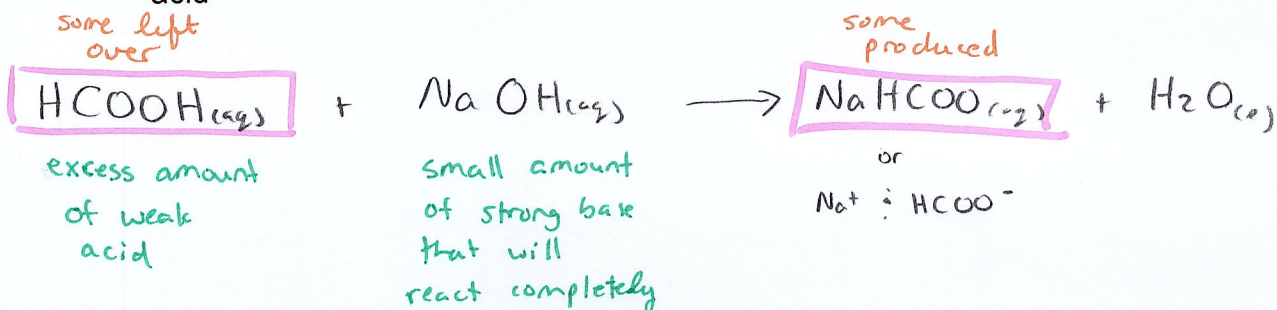 acid
some left
over
some
produced
HCOOH(aq) + NaOH(aq) → NaHCOO(aq) + H2O(l)
excess amount
of weak
acid
small amount
of strong base
that will
react completely
or
Na+ ; HCOO-